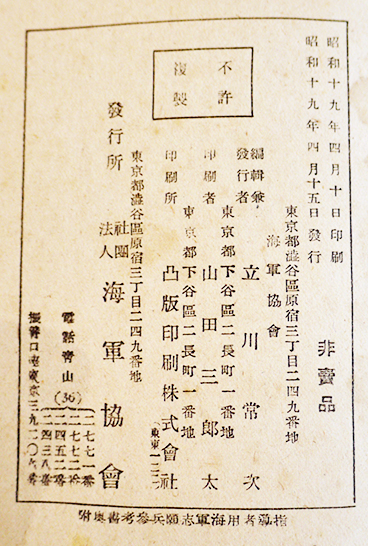 昭和十九年四月十日印刷
昭和十九年四月十五日發行
非賣品
東京都澁谷區原宿三丁目二四九番地
海軍協會
編輯兼
發行者
立川常次
東京都下谷區二長町一番地
印刷者
山田三郎太
東京都下谷區二長町一番地
印刷所
凸版印刷株式會社
不許
複製
東京都澁谷區原宿三丁目二四九番地
發行所
社團
法人
海軍協會
電話靑山(36)
二七七一番
二七七二番
二四五二番
二四三八番
指導者用海軍志願兵參考書奥附